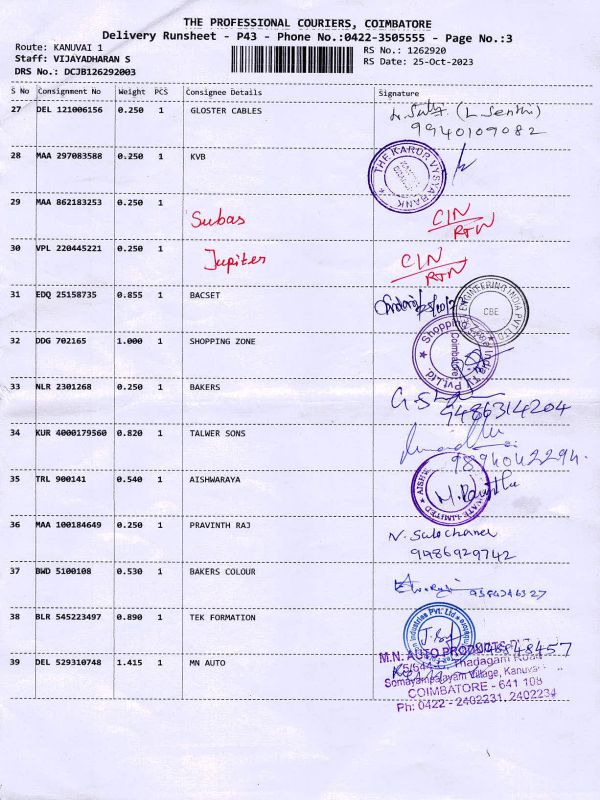 THE PROFESSIONAL COURIERS, COIMBATORE
Delivery Runsheet - P43 - Phone No.:0422-3505555 - Page No.:3
Route: KANUVAI 1
Staff: VIJAYADHARAN S
DRS No.: DCJB126292003
RS No.: 1262920
RS Date: 25-Oct-2023
S No Consignment No Weight PCS Consignee Details Signature
27 DEL 121006156 0.250 1 GLOSTER CABLES (L Senthi)
9940109082
28 MAA 297083588 0.250 1 KVB THE KARUR VYSYA BANK
29 MAA 862183253 0.250 1
Subas C/N
RTN
30 VPL 220445221 0.250 1 Jupiter C/N
RTN
31 EDQ 25158735 0.855 1 BACSET ENGINEERING INDIA PVT LTD CBE
32 DDG 702165 1.000 1 SHOPPING ZONE Shopping Coimbatore Pvt Ltd.
33 NLR 2301268 0.250 1 BAKERS
9486314204
34 KUR 4000179560 0.820 1 TALWER SONS
9894042294.
35 TRL 900141 0.540 1 AISHWARAYA LIMITED
36 MAA 100184649 0.250 1 PRAVINTH RAJ N. Sulochana
9986929742
37 BWD 5100108 0.530 1 BAKERS COLOUR
38 BLR 545223497 0.890 1 TEK FORMATION Industries Pvt. Ltd
39 DEL 529310748 1.415 1 MN AUTO M.N. AUTO PRODUCTS
Thadagam Road
Somayampalayam Village, Kanuvai
COIMBATORE - 641 108
Ph: 0422 - 2402231, 2402234